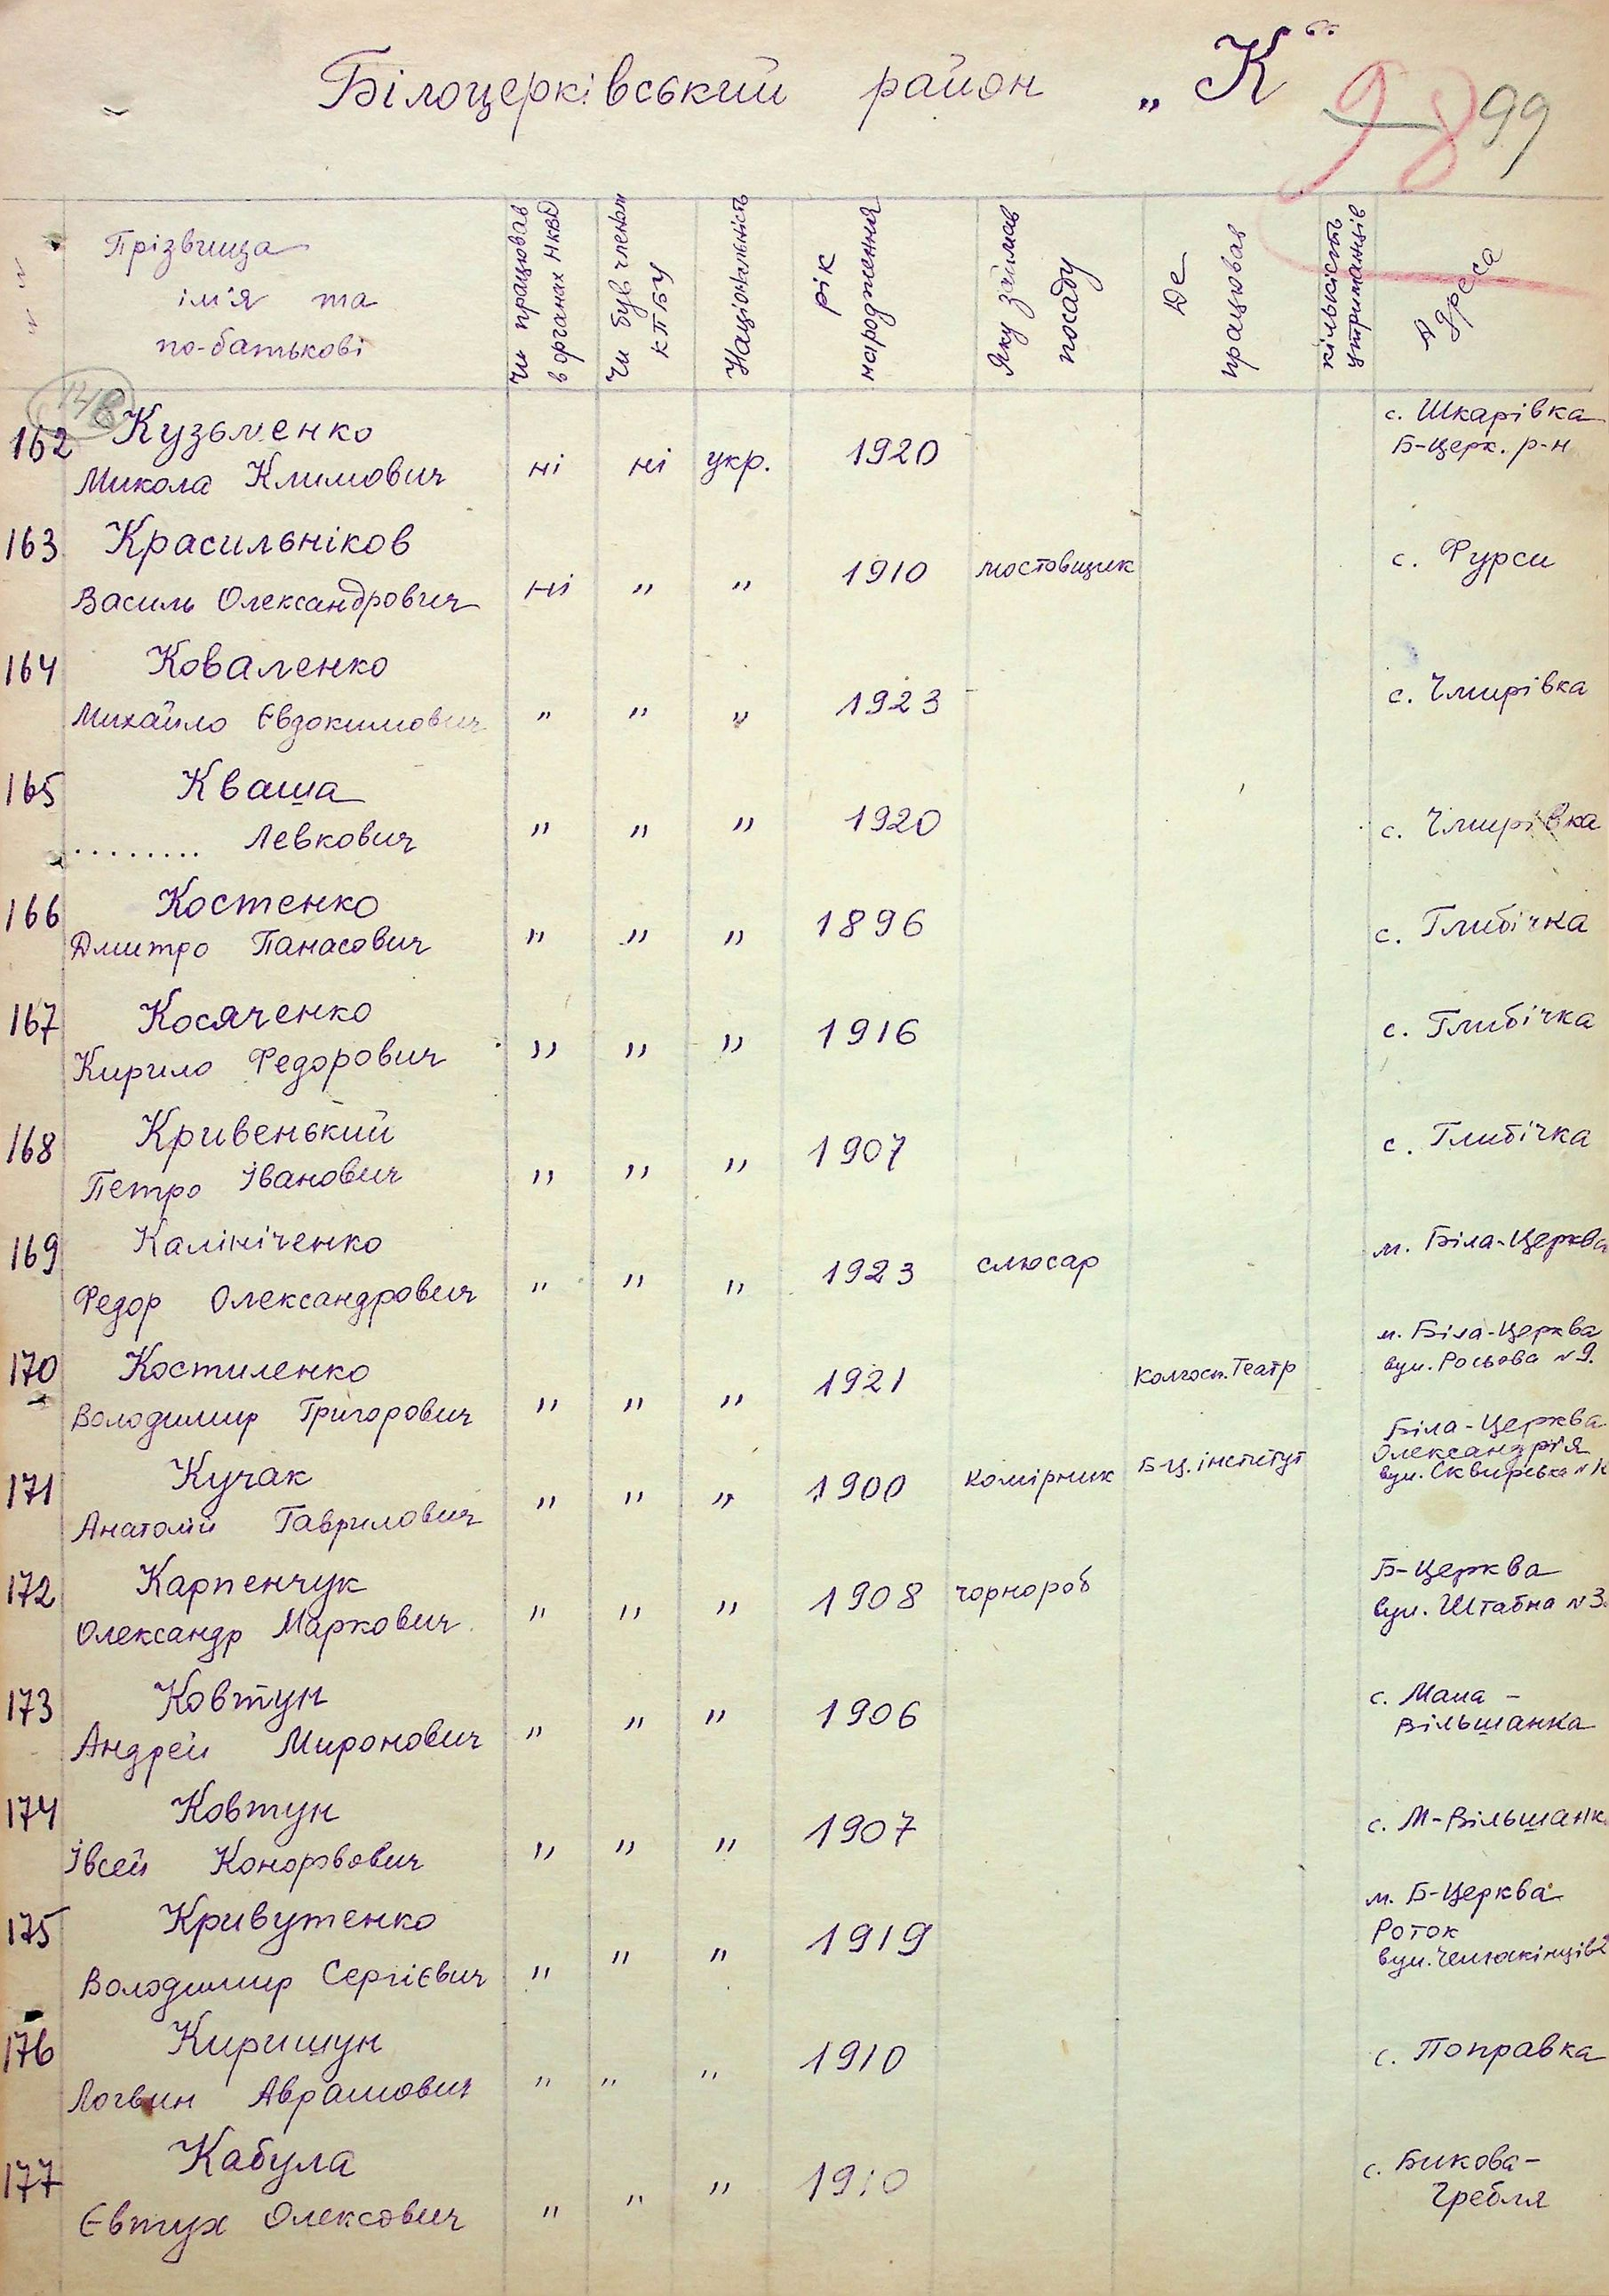 Білоцерківський район „К"
98 99
№ №
Прізвища
ім'я та
по-батькові
Чи працював
в органах НКВД
Чи був членом
КПБУ
Національність
рік
народження
Яку займав
посаду
Де
працював
кількість
утриманців
Адреса
148
162 Кузьменко с. Шкарівка
Б-Церк. р-н
Микола Климович ні ні укр. 1920
163 Красильніков
Василь Олександрович ні " " 1910 мостовщик с. Фурси
164 Коваленко
Михайло Євдокимович " " " 1923 с. Чмирівка
165 Кваша
......... Левкович " " " 1920 с. Чмирівка
166 Костенко
Дмитро Панасович " " " 1896 с. Глибічка
167 Косяченко
Кирило Федорович " " " 1916 с. Глибічка
168 Кривенький
Петро Іванович " " " 1907 с. Глибічка
169 Калініченко
Федор Олександрович " " " 1923 слюсар м. Біла-Церква
170 Костиленко м. Біла-Церква
вул. Росьова №9.
Володимир Григорович " " " 1921 Колгосп. Театр
171 Кучак Біла-Церква
Олександрія
вул. Сквирська №
Анатолій Гаврилович " " " 1900 комірник Б-Ц. інститут
172 Карпенчук Б-Церква
Олександр Маркович " " " 1908 чорнороб вул. Штабна №3.
173 Ковтун с. Мала -
Вільшанка
Андрей Миронович " " " 1906
174 Ковтун
Івсей Кононович " " " 1907 с. М-Вільшанк
175 Кривутенко м. Б-Церква
Роток
вул. Челюскінців 2
Володимир Сергієвич " " " 1919
176 Киришун
Логвин Аврамович " " " 1910 с. Поправка
177 Кабула с. Бикова-
Гребля
Євтух Олексович " " " 1910